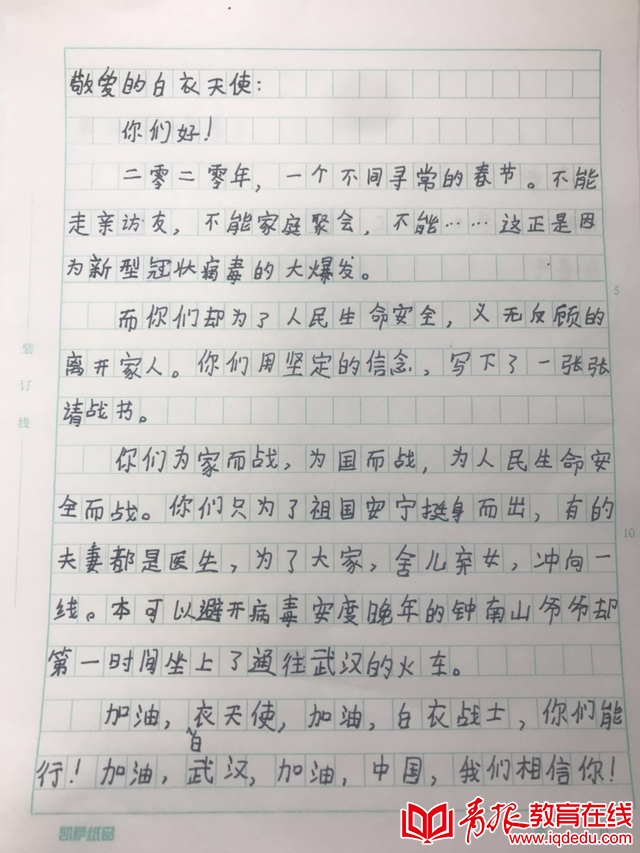 敬爱的白衣天使：
你们好！
二零二零年，一个不同寻常的春节。不能
走亲访友，不能家庭聚会，不能……这正是因
为新型冠状病毒的大爆发。
而你们却为了人民生命安全，义无反顾的
离开家人。你们用坚定的信念，写下了一张张
请战书。
你们为家而战，为国而战，为人民生命安
全而战。你们只为了祖国安宁挺身而出，有的
夫妻都是医生，为了大家，舍儿弃女，冲向一
线。本可以避开病毒安度晚年的钟南山爷爷却
第一时间坐上了通往武汉的火车。
加油，白衣天使，加油，白衣战士，你们能
行！加油，武汉，加油，中国，我们相信你！
装订线
5
10
凯萨纸品
青报教育在线
www.iqdedu.com